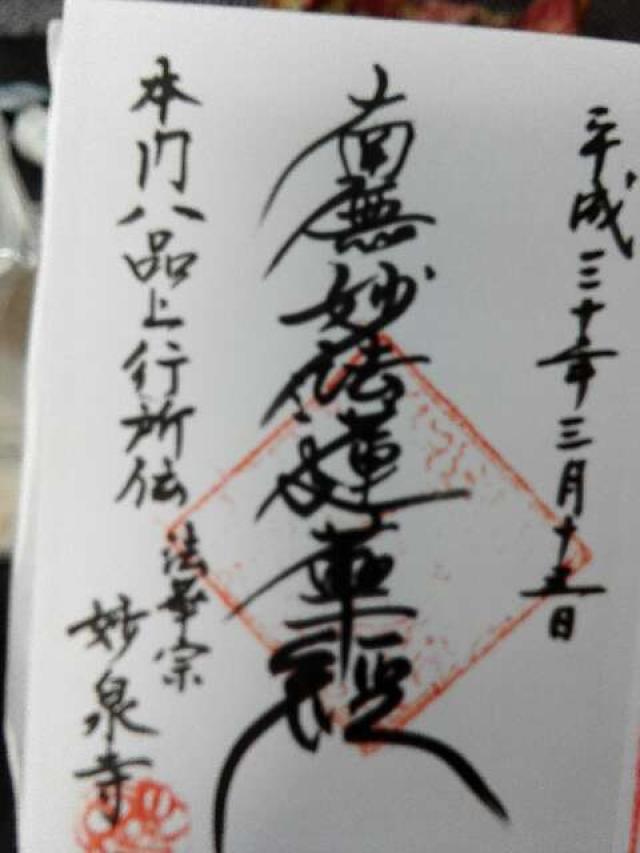 平成三十年三月十五日
南無妙法蓮華経
本門八品上行所伝
法華宗
妙泉寺